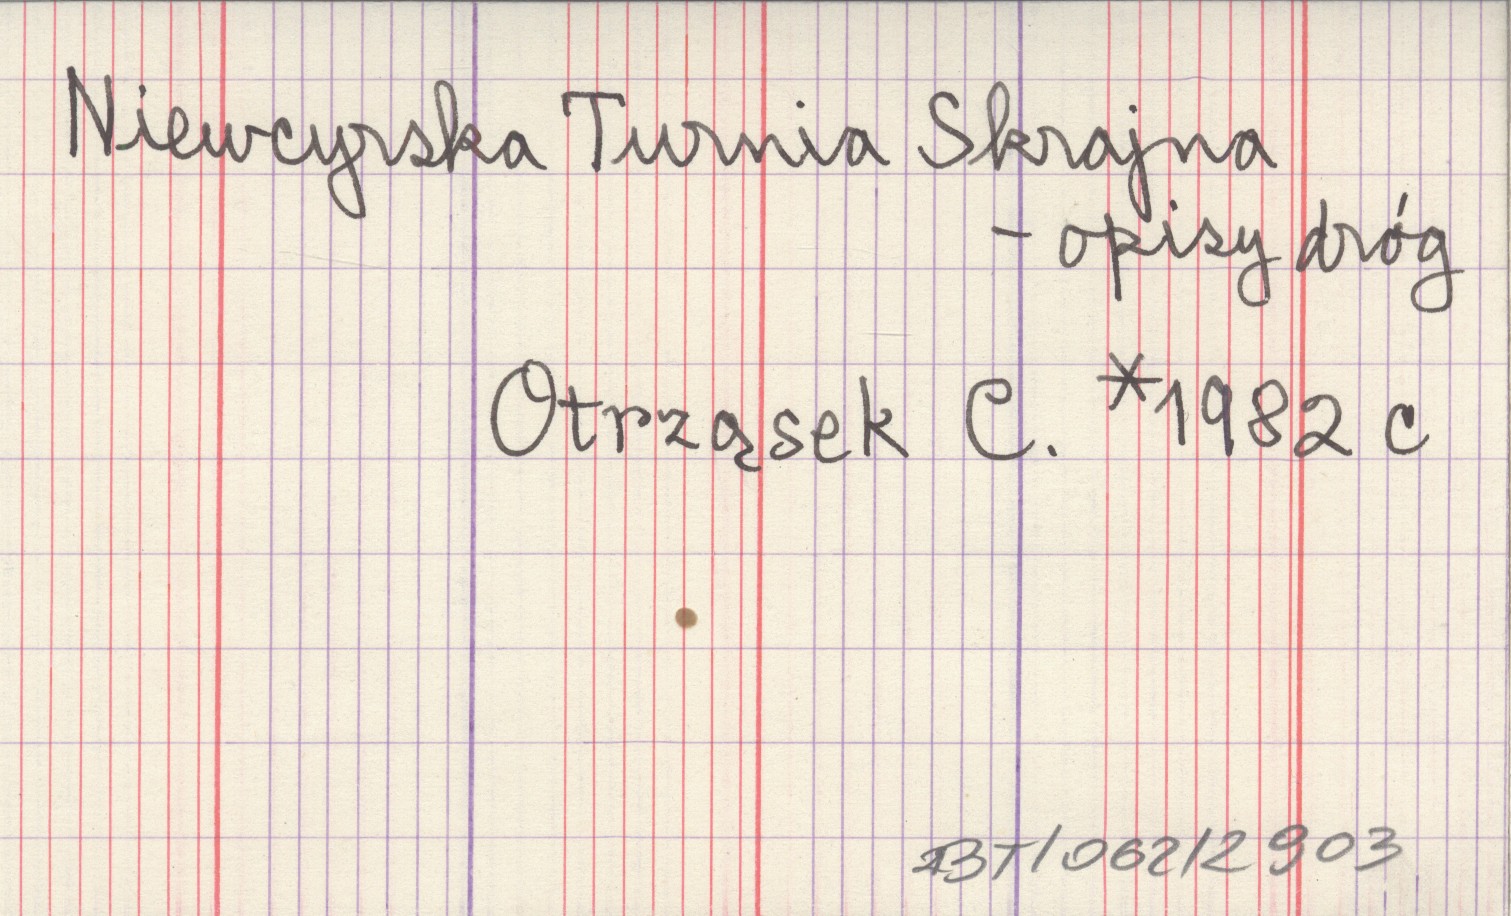 Niewcyrska Turnia Skrajna
- opisy dróg
Otrząsek C. *1982 c
BT/062/2903